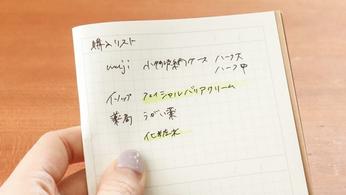 購入リスト
muji 小物収納ケース ハーフ大
ハーフ中
イソップ フェイシャルバリアクリーム
薬局 うがい薬
化粧水